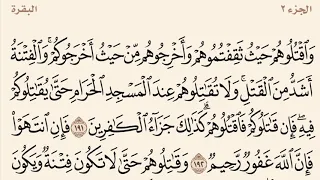 الجزء ٢ البقرة
وَٱقۡتُلُوهُمۡ حَيۡثُ ثَقِفۡتُمُوهُمۡ وَأَخۡرِجُوهُم مِّنۡ حَيۡثُ أَخۡرَجُوكُمۡۚ وَٱلۡفِتۡنَةُ
أَشَدُّ مِنَ ٱلۡقَتۡلِۚ وَلَا تُقَٰتِلُوهُمۡ عِندَ ٱلۡمَسۡجِدِ ٱلۡحَرَامِ حَتَّىٰ يُقَٰتِلُوكُمۡ
فِيهِۖ فَإِن قَٰتَلُوكُمۡ فَٱقۡتُلُوهُمۡۗ كَذَٰلِكَ جَزَآءُ ٱلۡكَٰفِرِينَ ١٩١ فَإِنِ ٱنتَهَوۡاْ
فَإِنَّ ٱللَّهَ غَفُورٞ رَّحِيمٞ ١٩٢ وَقَٰتِلُوهُمۡ حَتَّىٰ لَا تَكُونَ فِتۡنَةٞ وَيَكُونَ